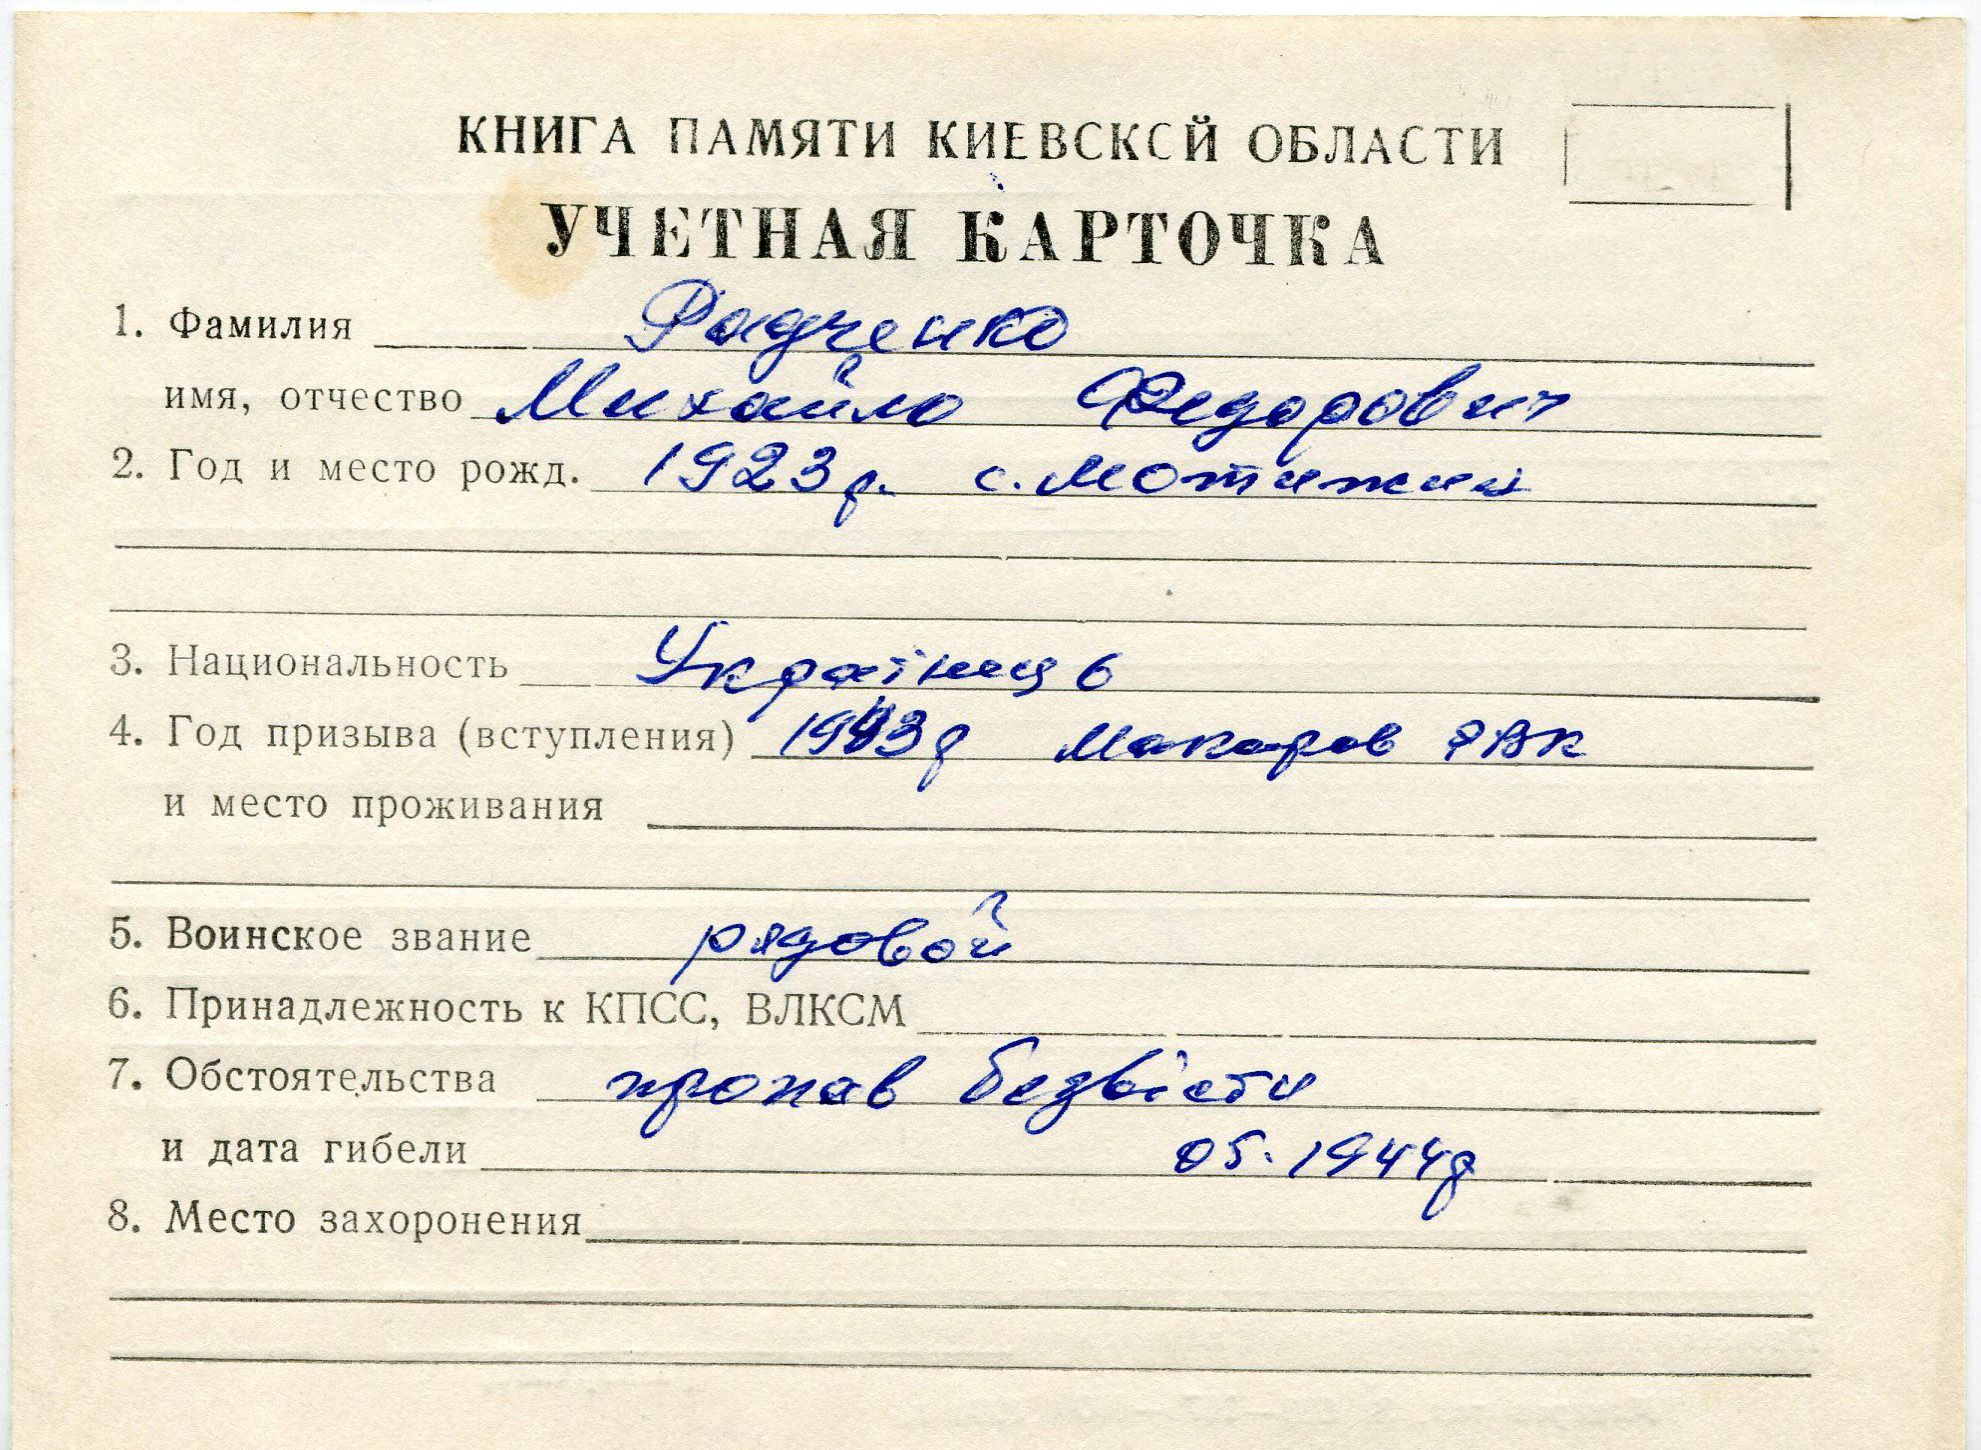 КНИГА ПАМЯТИ КИЕВСКСЙ ОБЛАСТИ
УЧЕТНАЯ КАРТОЧКА
1. Фамилия Радченко
имя, отчество Михайло Федорович
2. Год и место рожд. 1923 р. с. Мотижин
3. Национальность Українець
4. Год призыва (вступления) 1943р Макаров РВК
и место проживания
5. Воинское звание рядовой
6. Принадлежность к КПСС, ВЛКСМ
7. Обстоятельства пропав безвісти
и дата гибели 05.1944р
8. Место захоронения